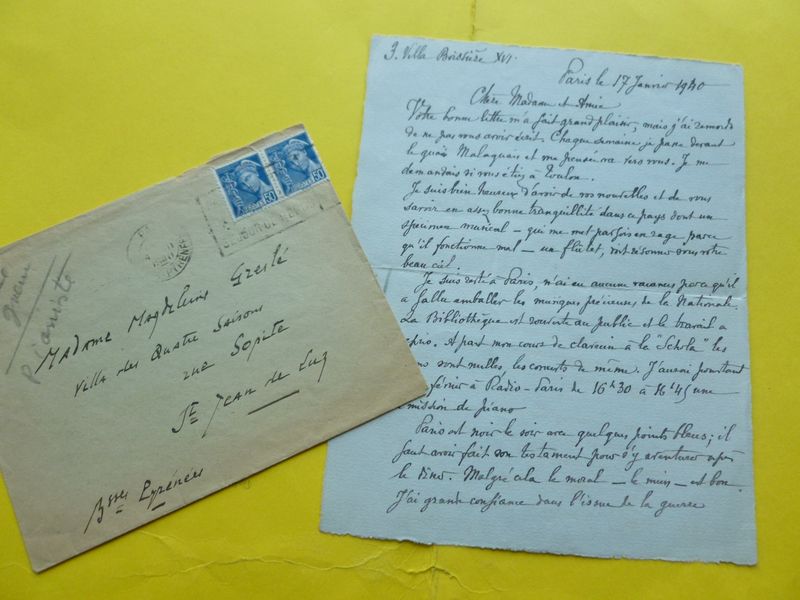 3. Villa Boissière XVI.
Paris le 17 Janvier 1940
Chère Madame et Amie
Votre bonne lettre m'a fait grand plaisir, mais j'ai remords
de ne pas vous avoir écrit. Chaque semaine je passe devant
le quai Malaquais et ma pensée va vers vous. Je me
demandais si vous étiez à Toulon.
Je suis bien heureux d'avoir de vos nouvelles et de vous
savoir en assez bonne tranquillité dans ce pays dont un
spécimen musical – qui me met parfois en rage parce
qu'il fonctionne mal – un flûtet, vont résonner sous votre
beau ciel.
Je suis resté à Paris, n'ai eu aucunes vacances parce qu'il
a fallu emballer les musiques précieuses de la Nationale.
La Bibliothèque est rouverte au public et le travail a
repris. A part mon cours de clavecin à la "Schola" les
sont nulles, les concerts de même. J'aurai pourtant
février à Radio-Paris de 16h30 à 16h45 une
émission de piano
Paris est noir le soir avec quelques points bleus; il
faut avoir fait son testament pour s'y aventurer après
le dîner. Malgré cela le moral – le mien – est bon.
J'ai grande confiance dans l'issue de la guerre
50
50
Pianiste
Madame Magdeleine Greslé
Villa des Quatre Saisons
rue Sopite
St Jean de Luz
Bsses Pyrénées